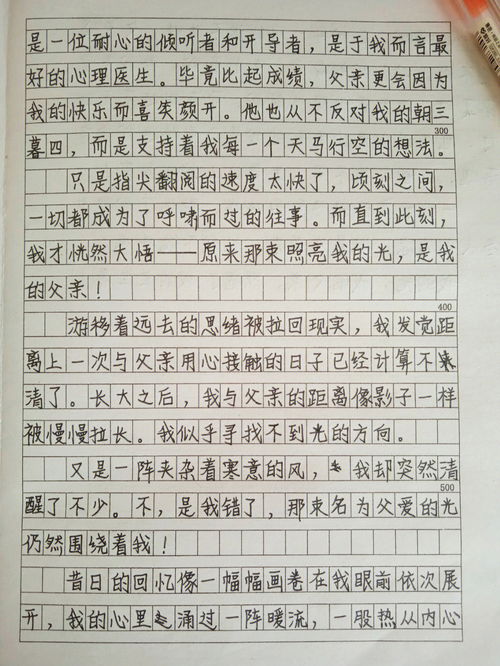 是一位耐心的倾听者和开导者，是于我而言最
好的心理医生。毕竟比起成绩，父亲更会因为
我的快乐而喜笑颜开。他也从不反对我的朝三
300
暮四，而是支持着我每一个天马行空的想法。
只是指尖翻阅的速度太快了，顷刻之间，
一切都成为了呼啸而过的往事。而直到此刻，
我才恍然大悟——原来那束照亮我的光，是我
的父亲！
400
游移着远去的思绪被拉回现实，我发觉距
离上一次与父亲用心接触的日子已经计算不
清了。长大之后，我与父亲的距离像影子一样
被慢慢拉长。我似乎寻找不到光的方向。
又是一阵夹杂着寒意的风，我却突然清
500
醒了不少。不，是我错了，那束名为父爱的光
仍然围绕着我！
昔日的回忆像一幅幅画卷在我眼前依次展
开，我的心里涌过一阵暖流，一股热从内心